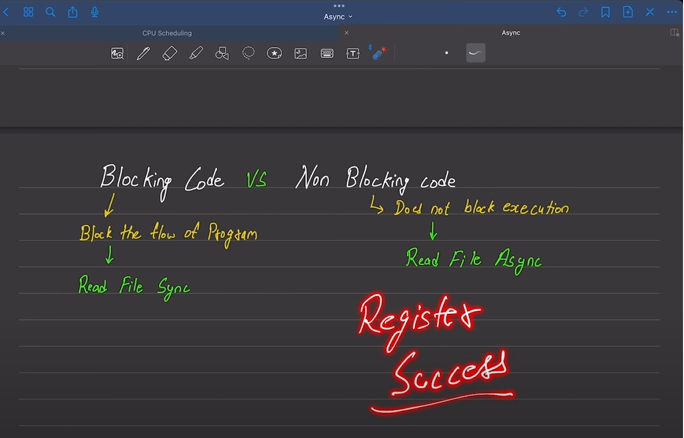 Async
CPU Scheduling
Async
Blocking Code VS Non Blocking code
Block the flow of Program
Does not block execution
Read File Sync
Read File Async
Register
Success